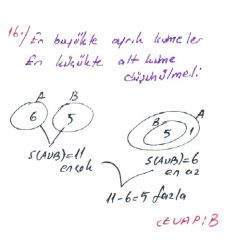 16./ En büyükte ayrık kümeler
En küçükte alt küme
düşünülmeli
A B
6 5
A
B
5 1
S(AUB)=11
en çok
S(AUB)=6
en az
11-6=5 fazla
CEVAP:B